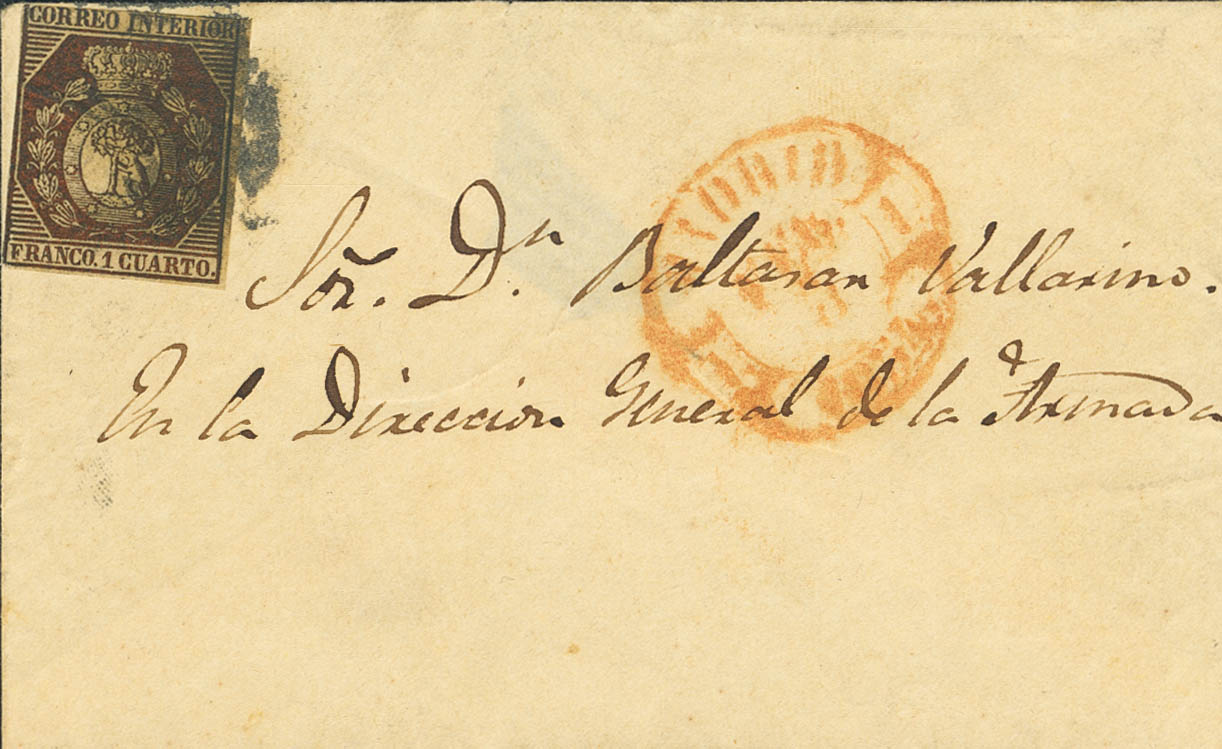 CORREO INTERIOR
FRANCO. 1 CUARTO.
MADRID
Sor. D.n Baltasar Vallarino.
En la Direccion General de la Armada